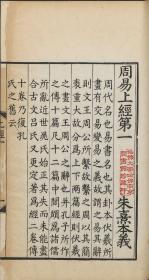 周易上經第一
朱熹本義
周代名也易書名也其卦本伏羲所
畫有交易變易之義故謂之易其辭
則文王周公所繫故繫之周以其簡
袠重大故分為上下兩篇經則伏羲
之畫文王周公之辭也并孔子所作
之傳十篇凡十二篇中間頗為諸儒
所亂近世晁氏始正其失而未能盡
合古文呂氏又更定著為經二卷傳
十卷乃復孔
氏之舊云